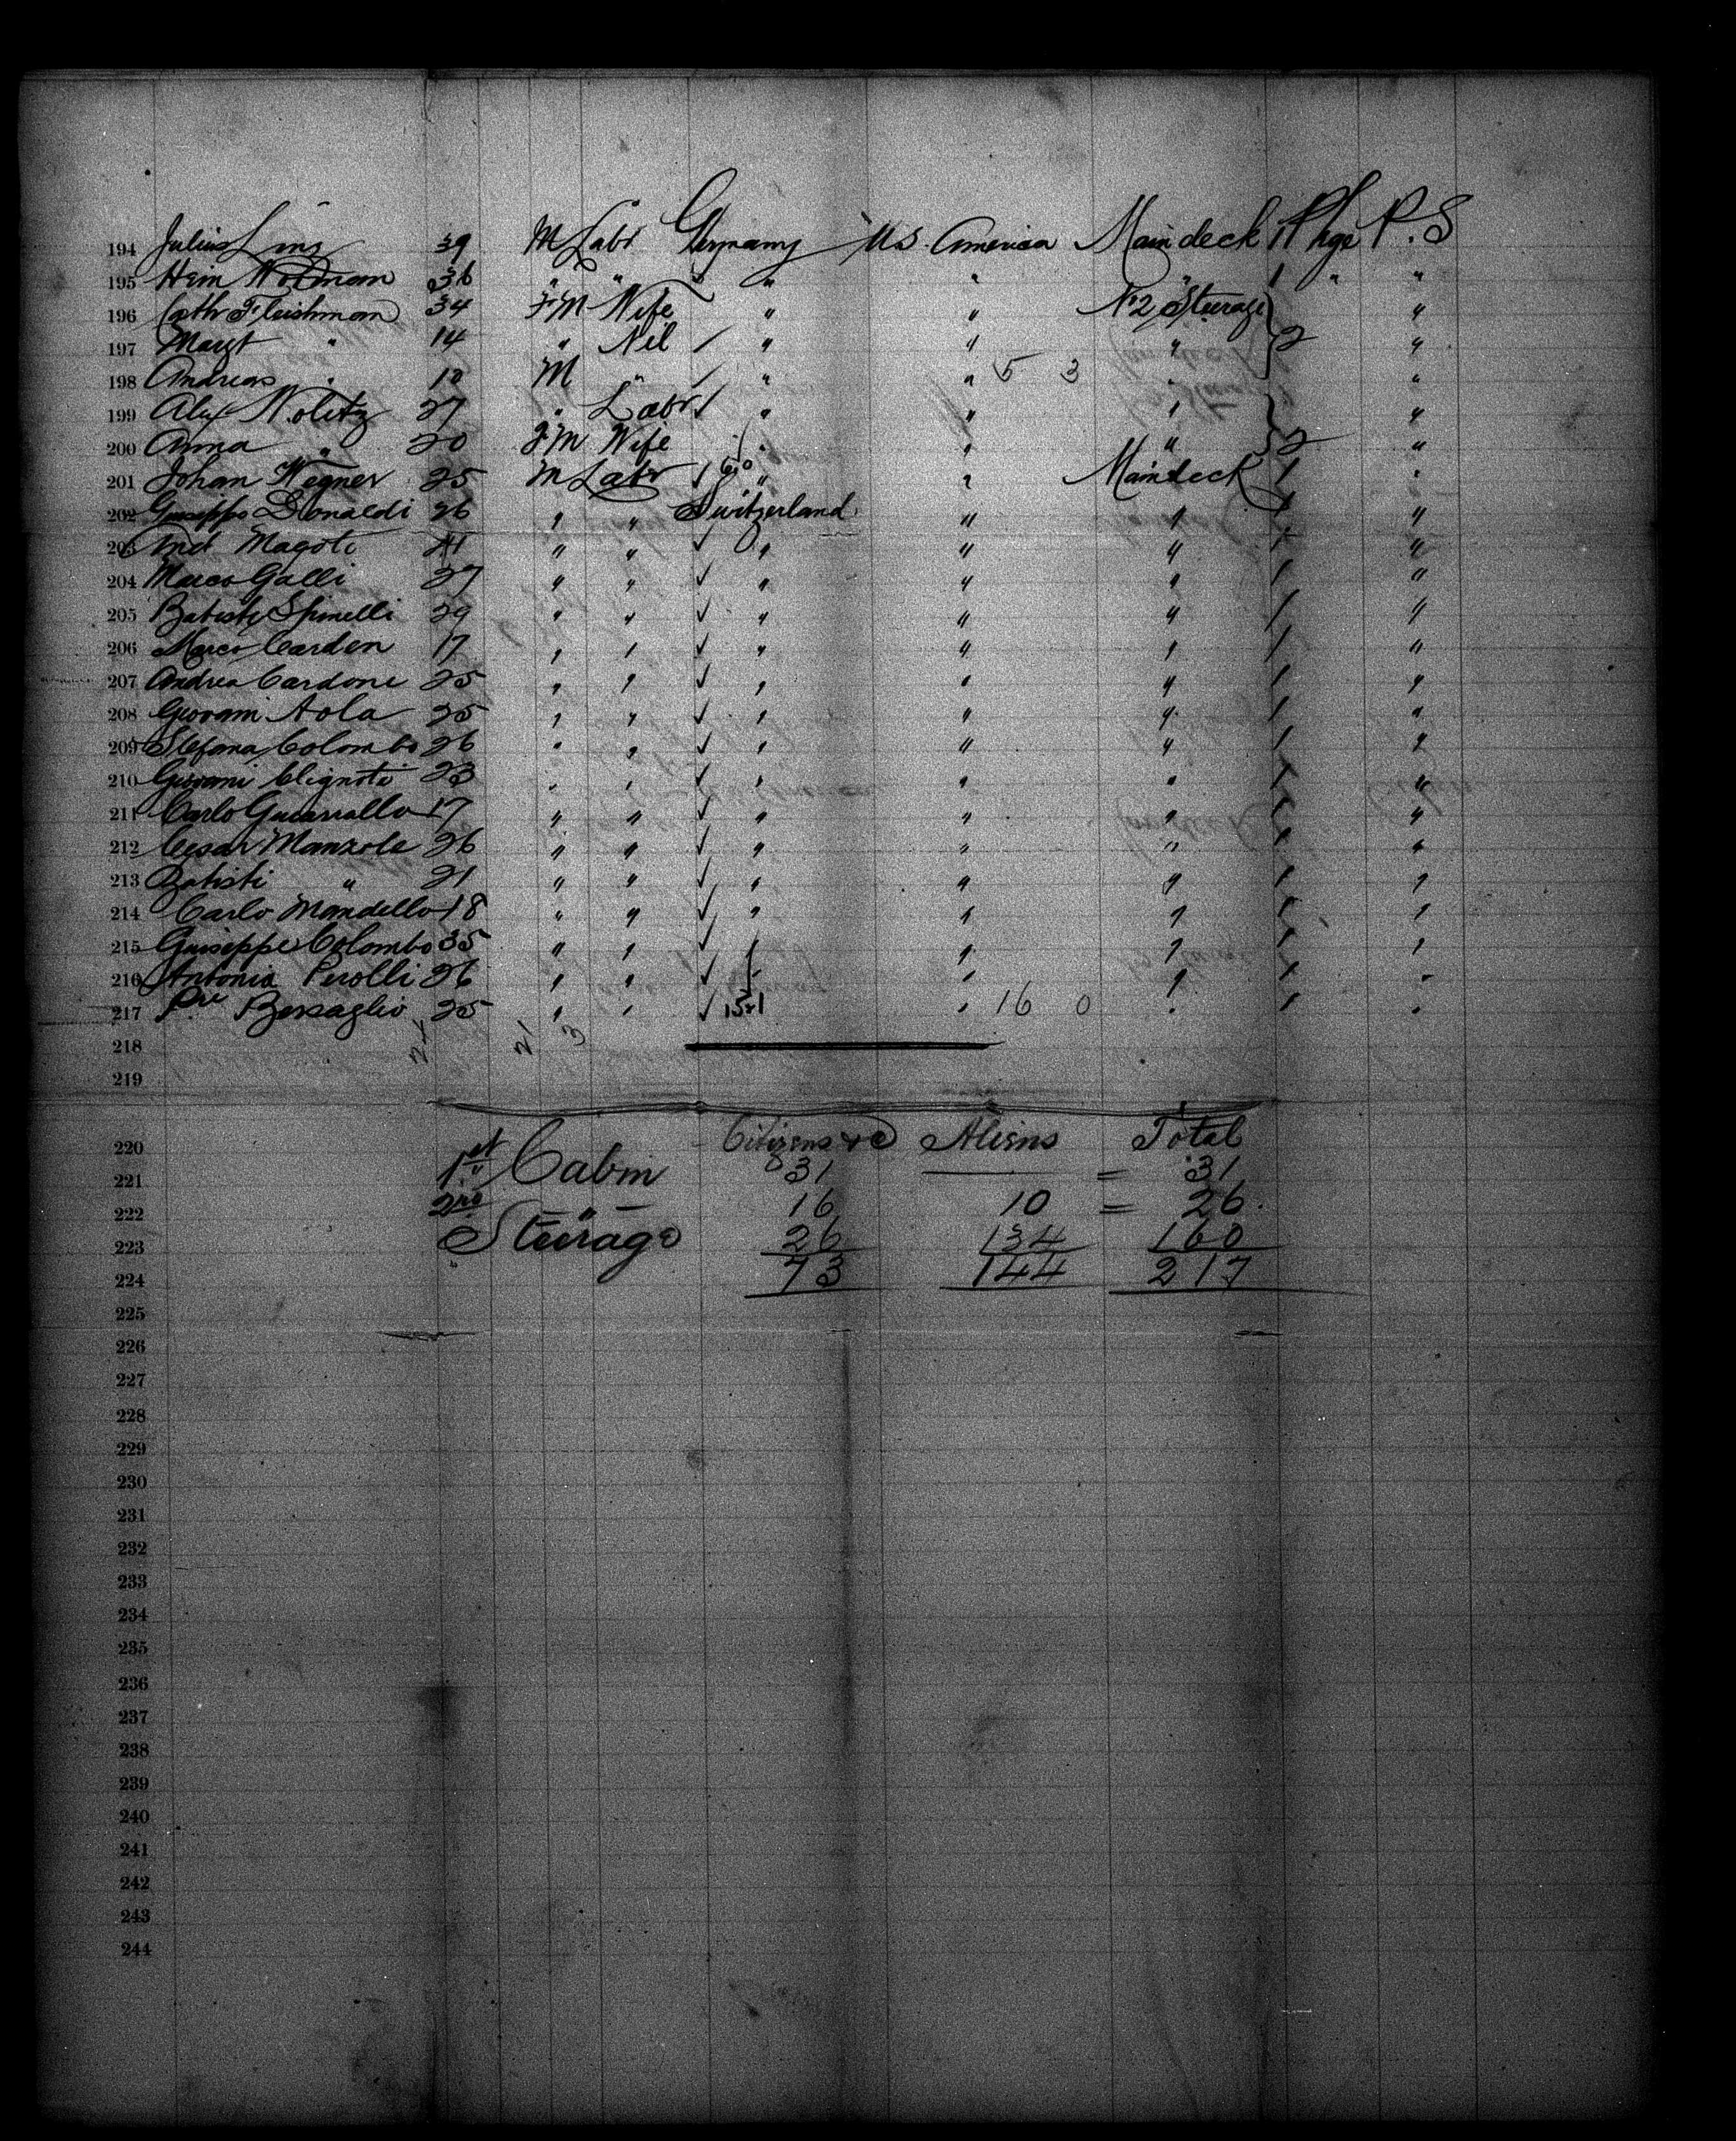 194 Julius Linz 39 M Labr Germany U.S. America Maindeck 1 Pkge P.S
195 Hein 36 " " " " " 1 " "
196 Cath Fleishman 34 F M Wife " " No 2 Steerage "
197 Margt " 14 " Nil / " " " 2 "
198 Andreas " 10 M " / " " 5 3 " "
199 Alex Nolitz 27 " Labr / " " " "
200 Anna " 20 F M Wife " " " 2 "
201 Johan Wegner 25 M Labr / 6.0 " " Maindeck 1 "
202 Guiseppe Donaldi 26 " " Switzerland " " 1 "
203 Magoti 21 " " ✓ " " " 1 "
204 Marco Galli 27 " " ✓ " " " 1 "
205 Batiste Spinelli 29 " " ✓ " " " 1 "
206 Marco Carden 17 " " ✓ " " " 1 "
207 Andrea Cardone 25 " " ✓ " " " 1 "
208 Giovani Aola 25 " " ✓ " " " 1 "
209 Stefana Colombo 26 " " ✓ " " " 1 "
210 Giovani Clignoti 23 " " ✓ " " " 1 "
211 Carlo 17 " " ✓ " " " 1 "
212 Cesar Manzole 26 " " ✓ " " " 1 "
213 Batisti " 21 " " ✓ " " " 1 "
214 Carlo Mandello 18 " " ✓ " " " 1 "
215 Guiseppe Colombo 35 " " ✓ " " " 1 "
216 Antonia Perolli 26 " " ✓ " " " 1 "
217 Bersaglio 25 " " ✓ " 16 0 " 1 "
218 24 21 3
219
220 Citizens &c Aliens Total
221 1st Cabin 31 — = 31
222 2nd — " — 16 10 = 26
223 Steerage 26 134 160
224 73 144 217
225
226
227
228
229
230
231
232
233
234
235
236
237
238
239
240
241
242
243
244